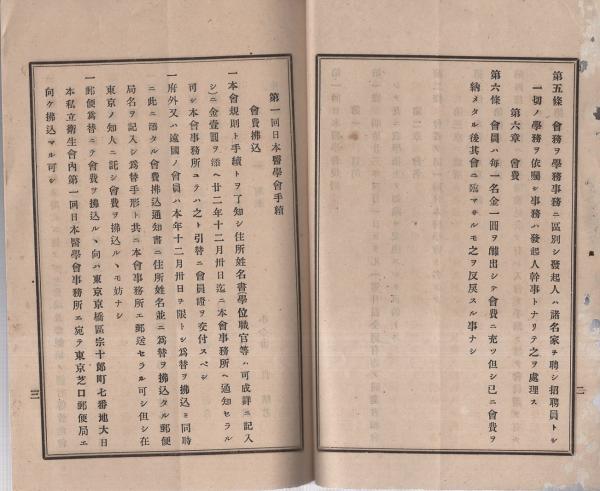 第五條　會務ヲ學務事務ニ區別シ發起人ハ諸名家ヲ聘シ招聘員トシ
一切ノ學務ヲ依囑シ事務ハ發起人幹事トナリテ之ヲ處理ス
第六章　會費
第六條　會員ハ每一名金一圓ヲ醵出シテ會費ニ充ツ但シ已ニ會費ヲ
納メタル後其會ニ臨マサルモ之ヲ反戾スル事ナシ
二
第一回日本醫學會手續
會費拂込
一本會規則ト手續トヲ了知シ住所姓名書學位職官等ハ可成詳ニ記入
シ)ニ金壹圓ヲ添ヘ廿二年十二月卅日迄ニ本會事務所ヘ通知セラル
可シ本會事務所ユラハ之ト引替ニ會員證ヲ交付スベシ
一府外又ハ遠國ノ會員ハ本年十二月卅日ヲ限トシ爲替ヲ拂込ミ同時
ニ此ニ添タル會費拂込通知書ニ住所姓名並ニ爲替ヲ拂込タル郵便
局名ヲ記入シ爲替手形ト共ニ本會事務所エ郵送セラル可シ但シ在
東京ノ知人ニ託シ會費ヲ拂込ルヽモ妨ナシ
一郵便爲替ニテ會費ヲ拂込ルヽ向ハ東京京橋區宗十郎町七番地大日
本私立衞生會內第一回日本醫學會事務所エ宛テ東京芝口郵便局エ
向ケ拂込マル可シ
三